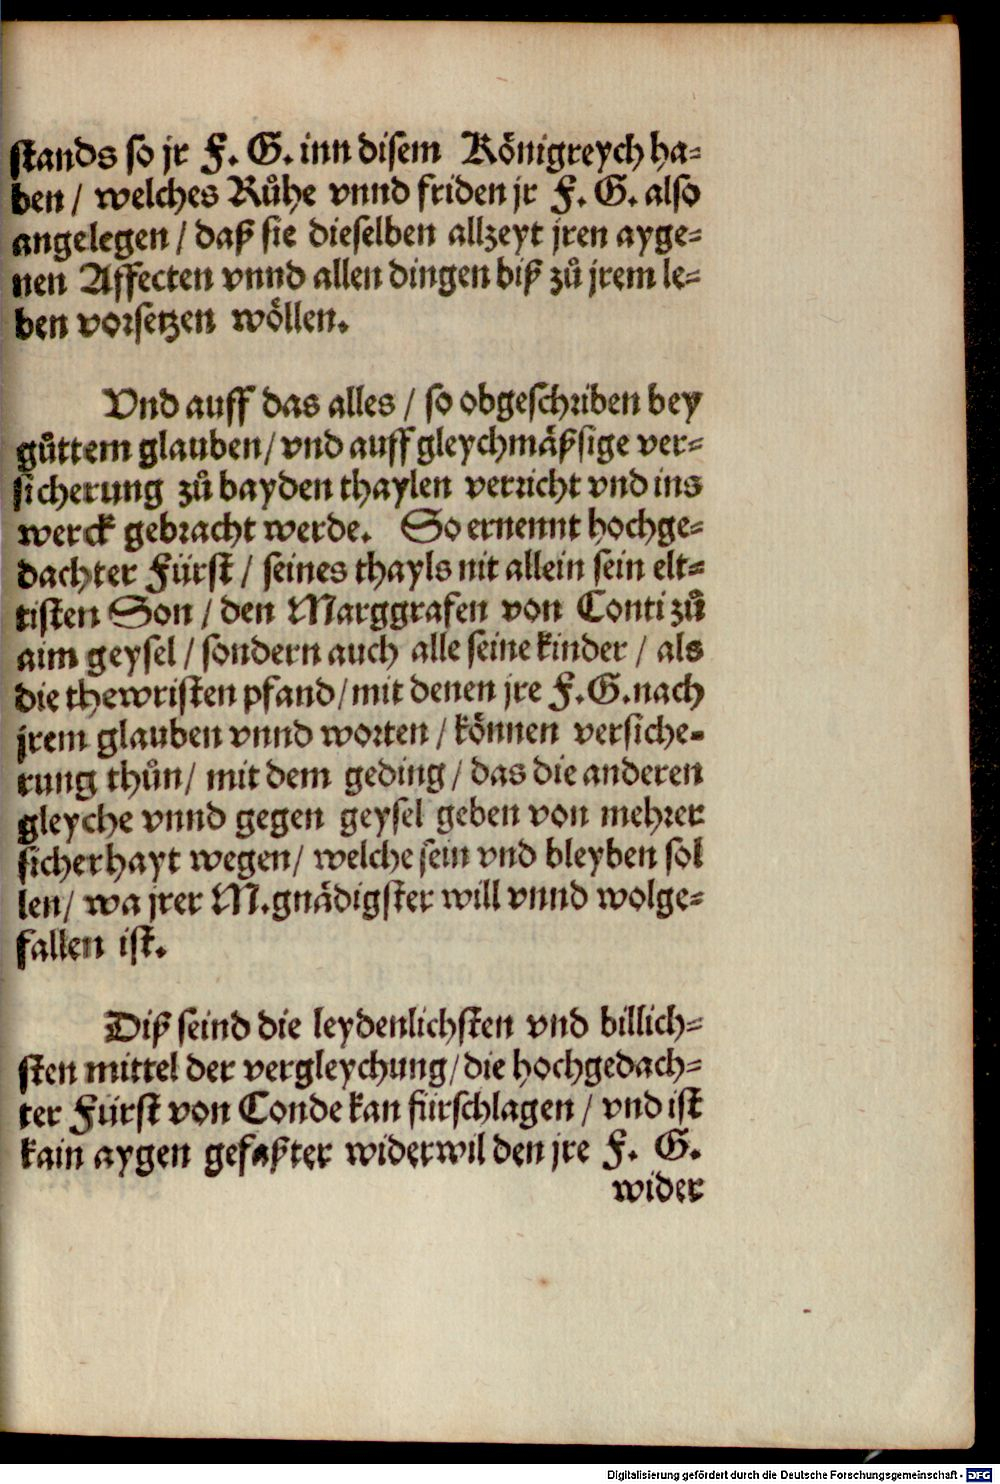 stands so jr F. G. inn disem Königreych ha-
ben / welches Růhe vnnd friden jr F. G. also
angelegen / daß sie dieselben allzeyt jren ayge-
nen Affecten vnnd allen dingen biß zů jrem le-
ben vorsetzen wöllen.
Vnd auff das alles / so obgeschriben bey
gůttem glauben / vnd auff gleychmäßsige ver-
sicherung zů bayden thaylen verricht vnd ins
werck gebracht werde. So ernennt hochge-
dachter Fürst / seines thayls nit allein sein elt-
tisten Son / den Marggrafen von Conti zů
aim geysel / sondern auch alle seine kinder / als
die thewristen pfand / mit denen jre F. G. nach
jrem glauben vnnd worten / können versiche-
rung thůn / mit dem geding / das die anderen
gleyche vnnd gegen geysel geben von mehrer
sicherhayt wegen / welche sein vnd bleyben sol
len / wa jrer M. gnädigster will vnnd wolge-
fallen ist.
Diß seind die leydenlichsten vnd billich-
sten mittel der vergleychung / die hochgedach-
ter Fürst von Conde kan fürschlagen / vnd ist
kain aygen gefaßter widerwil den jre F. G.
wider
Digitalisierung gefördert durch die Deutsche Forschungsgemeinschaft - DFG